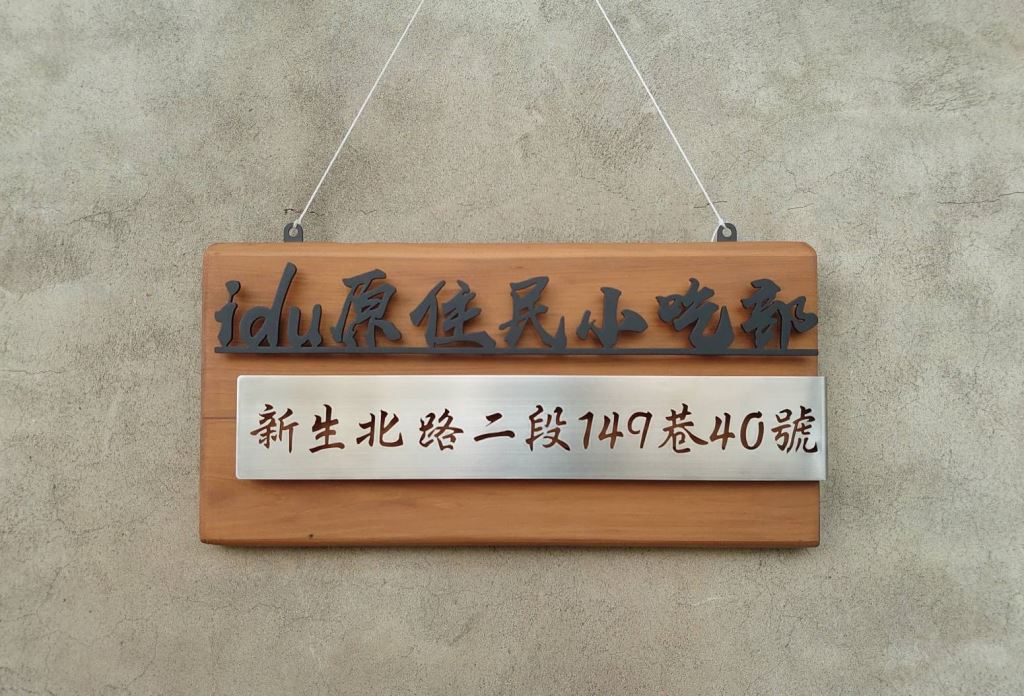 idu原住民小吃部
新生北路二段149巷40號